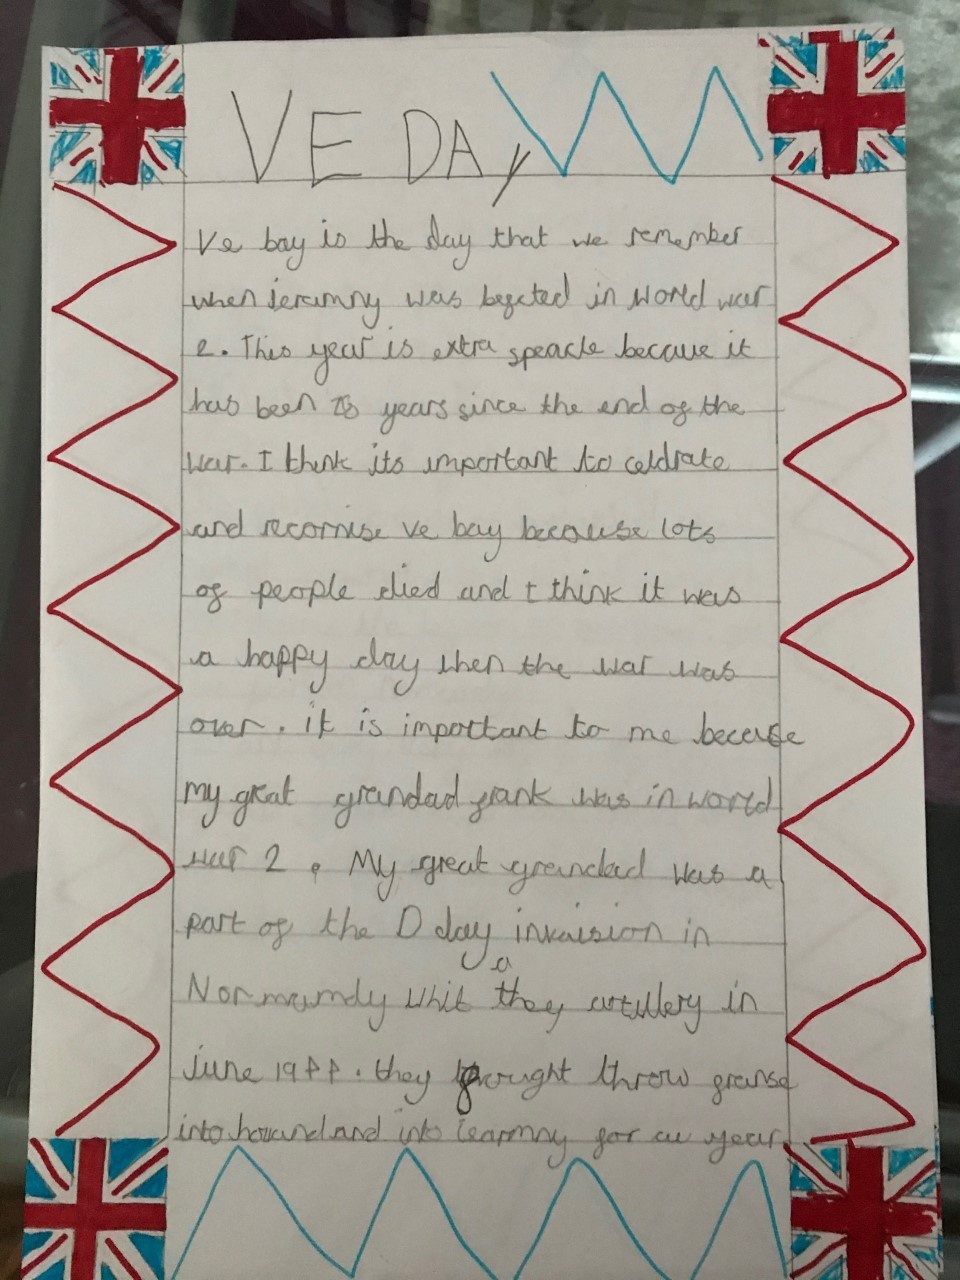 VE DAy
Ve bay is the day that we remember
when jeramny was befeted in world war
2. This year is extra speacle becaue it
has been 75 years since the end of the
war. I think its important to celdrate
and recornise ve bay becouse lots
of people died and I think it was
a happy day when the war was
over. it is important to me becauše
my great grandad frank was in world
war 2. My great grandad was a
part of the D day invaision in
Normamndy whit they artillery in
june 1944. they fought throw franse
intoholand and into Learmny for a year